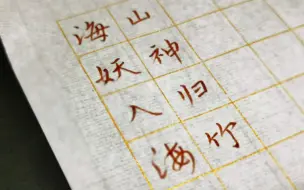 山神归竹
海妖入海